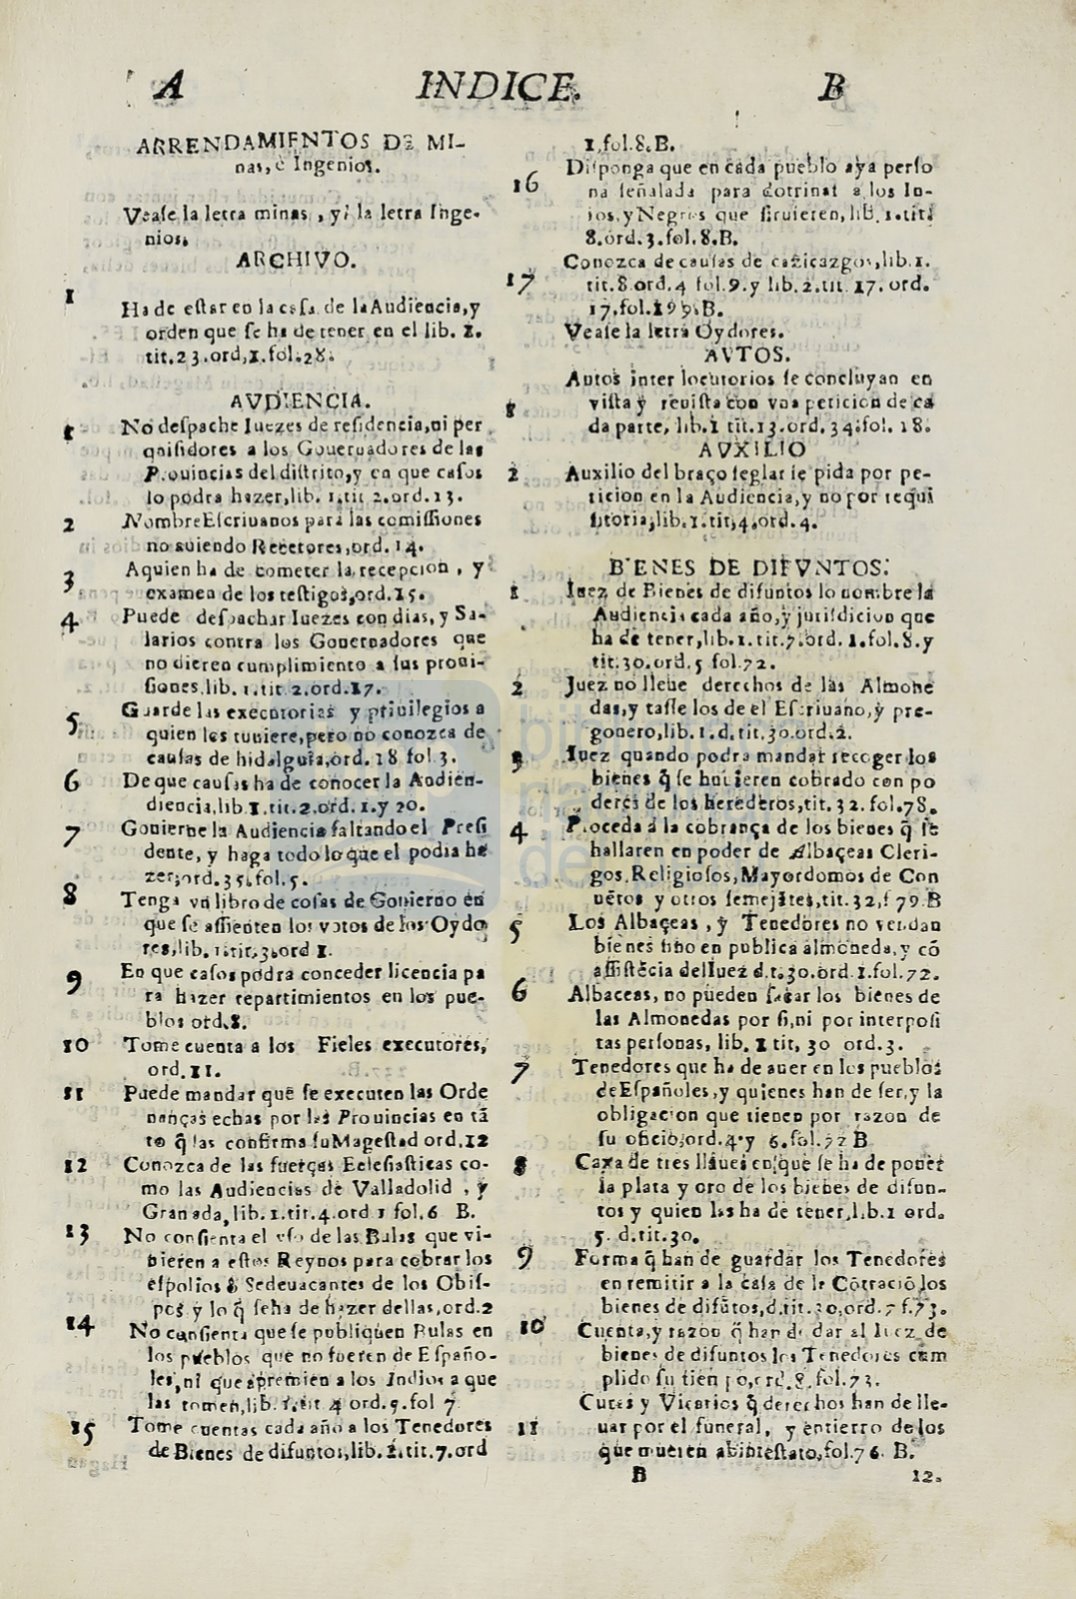 A INDICE. B
ARRENDAMIENTOS DE MI-
nas, è Ingenios.
Vease la letra minas, y la letra Inge-
nios.
ARCHIVO.
1 Ha de estar en la casa de la Audiencia, y
orden que se ha de tener en el lib. 1.
tit. 23. ord, 1. fol. 28.
AVDIENCIA.
1 No despache Iuezes de residencia, ni per
quisidores a los Gouernadores de las
Prouincias del distrito, y en que casos
lo podra hazer, lib. 1. tit 2. ord. 13.
2 Nombre Escriuanos para las comissiones
no auiendo Recetores, ord. 14.
3 A quien ha de cometer la recepcion, y
examen de los testigos, ord. 15.
4 Puede despachar Iuezes con dias, y Sa-
larios contra los Gouernadores que
no dieren cumplimiento a sus proui-
siones, lib. 1. tit 2. ord. 17.
5 Guarde las executorias y priuilegios a
quien los tuuiere, pero no conozca de
causas de hidalguia, ord. 18 fol 3.
6 De que causas ha de conocer la Audien-
diencia, lib. 1. tit. 2. ord. 1. y 20.
7 Gouierne la Audiencia faltando el Presi
dente, y haga todo lo que el podia ha
zer, ord. 35. fol. 5.
8 Tenga vn libro de cosas de Gouierno en
que se assienten los votos de los Oydo
res, lib. 1. tit. 3. ord 1.
9 En que casos podra conceder licencia pa
ra hazer repartimientos en los pue-
blos ord. 8.
10 Tome cuenta a los Fieles executores,
ord. 11.
11 Puede mandar que se executen las Orde
nanças echas por las Prouincias en tã
to q̃ las confirma su Magestad ord. 12
12 Conozca de las fuerças Eclesiasticas co-
mo las Audiencias de Valladolid, y
Granada, lib. 1. tit. 4. ord 1 fol. 6 B.
13 No consienta el vso de las Bulas que vi-
nieren a estos Reynos para cobrar los
espolios ò Sedeuacantes de los Obis-
pos y lo q̃ se ha de hazer dellas, ord. 2
14 No consienta que se publiquen Bulas en
los pueblos que no fueren de Españo-
les, ni que apremien a los Indios a que
las tomen, lib. 1. tit. 4 ord. 5. fol 7
15 Tome cuentas cada año a los Tenedores
de Bienes de difuntos, lib. 1. tit. 7. ord
1, fol. 8. B.
16 Disponga que en cada pueblo aya perso
na señalada para dotrinar a los In-
ios, y Negros que siruieren, lib. 1. tit.
8. ord. 3. fol. 8. B.
17 Conozca de causas de cazicazgos, lib. 1.
tit. 8. ord. 4 fol. 9. y lib. 2. tit 17. ord.
17. fol. 199. B.
Vease la letra Oydores.
AVTOS.
1 Autos inter locutorios se concluyan en
vista y reuista con vna peticion de ca
da parte, lib. 1 tit. 13. ord. 34. fol. 18.
AVXILIO
2 Auxilio del braço seglar se pida por pe-
ticion en la Audiencia, y no por requi
sitoria, lib. 1. tit, 4. ord. 4.
BIENES DE DIFVNTOS.
1 Iuez de Bienes de difuntos lo nombre la
Audiencia cada año, y jurisdicion que
ha de tener, lib. 1. tit. 7. ord. 1. fol. 8. y
tit. 30. ord. 5 fol. 72.
2 Juez no lleue derechos de las Almone
das, y tasse los de el Escriuano, y pre-
gonero, lib. 1. d. tit. 30. ord. 2.
3 Iuez quando podra mandar recoger los
bienes q̃ se huuieren cobrado con po
deres de los herederos, tit. 32. fol. 78.
4 Proceda á la cobrança de los bienes q̃ se
hallaren en poder de Albaçeas Cleri-
gos, Religiosos, Mayordomos de Con
uẽtos y otros semejãtes, tit. 32, f 79. B
5 Los Albaçeas, y Tenedores no vendan
bienes sino en publica almoneda, y cõ
assistẽcia del Iuez d. t. 30. ord. 1. fol. 72.
6 Albaceas, no pueden sacar los bienes de
las Almonedas por si, ni por interposi
tas personas, lib. 1 tit, 30 ord. 3.
7 Tenedores que ha de auer en los pueblos
de Españoles, y quienes han de ser, y la
obligacion que tienen por razon de
su oficio, ord. 4. y 6. fol. 72 B
8 Caxa de tres llaues en que se ha de poner
la plata y oro de los bienes de difun-
tos y quien las ha de tener, lib. 1 ord.
5. d. tit. 30.
9 Forma q̃ han de guardar los Tenedores
en remitir a la casa de la Cõtraciõ los
bienes de difũtos, d. tit. 30, ord. 7 f. 73.
10 Cuenta, y razon q̃ han de dar al Iuez de
bienes de difuntos los Tenedores cum
plido su tienpo, ord. 8. fol. 73.
11 Curas y Vicarios q̃ derechos han de lle-
uar por el funeral, y entierro de los
que mueren abintestato, fol. 76. B.
B 12.